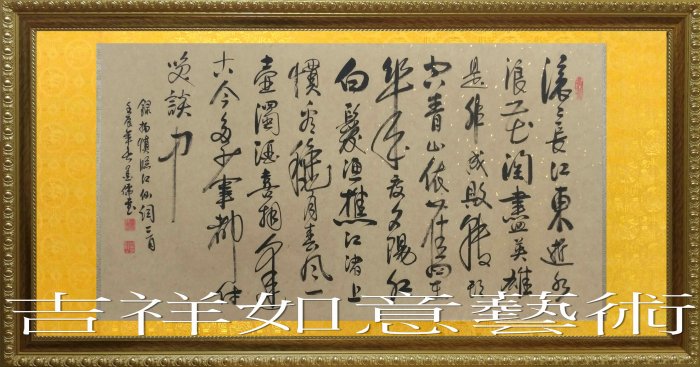 滾〻長江東逝水
浪花淘盡英雄
是非成敗轉頭
空青山依舊在幾
度夕陽紅
白髮漁樵江渚上
慣看秋月春風一
壺濁酒喜相逢
古今多少事都付
笑談中
錄楊慎臨江仙詞
壬辰年
吉祥如意藝術